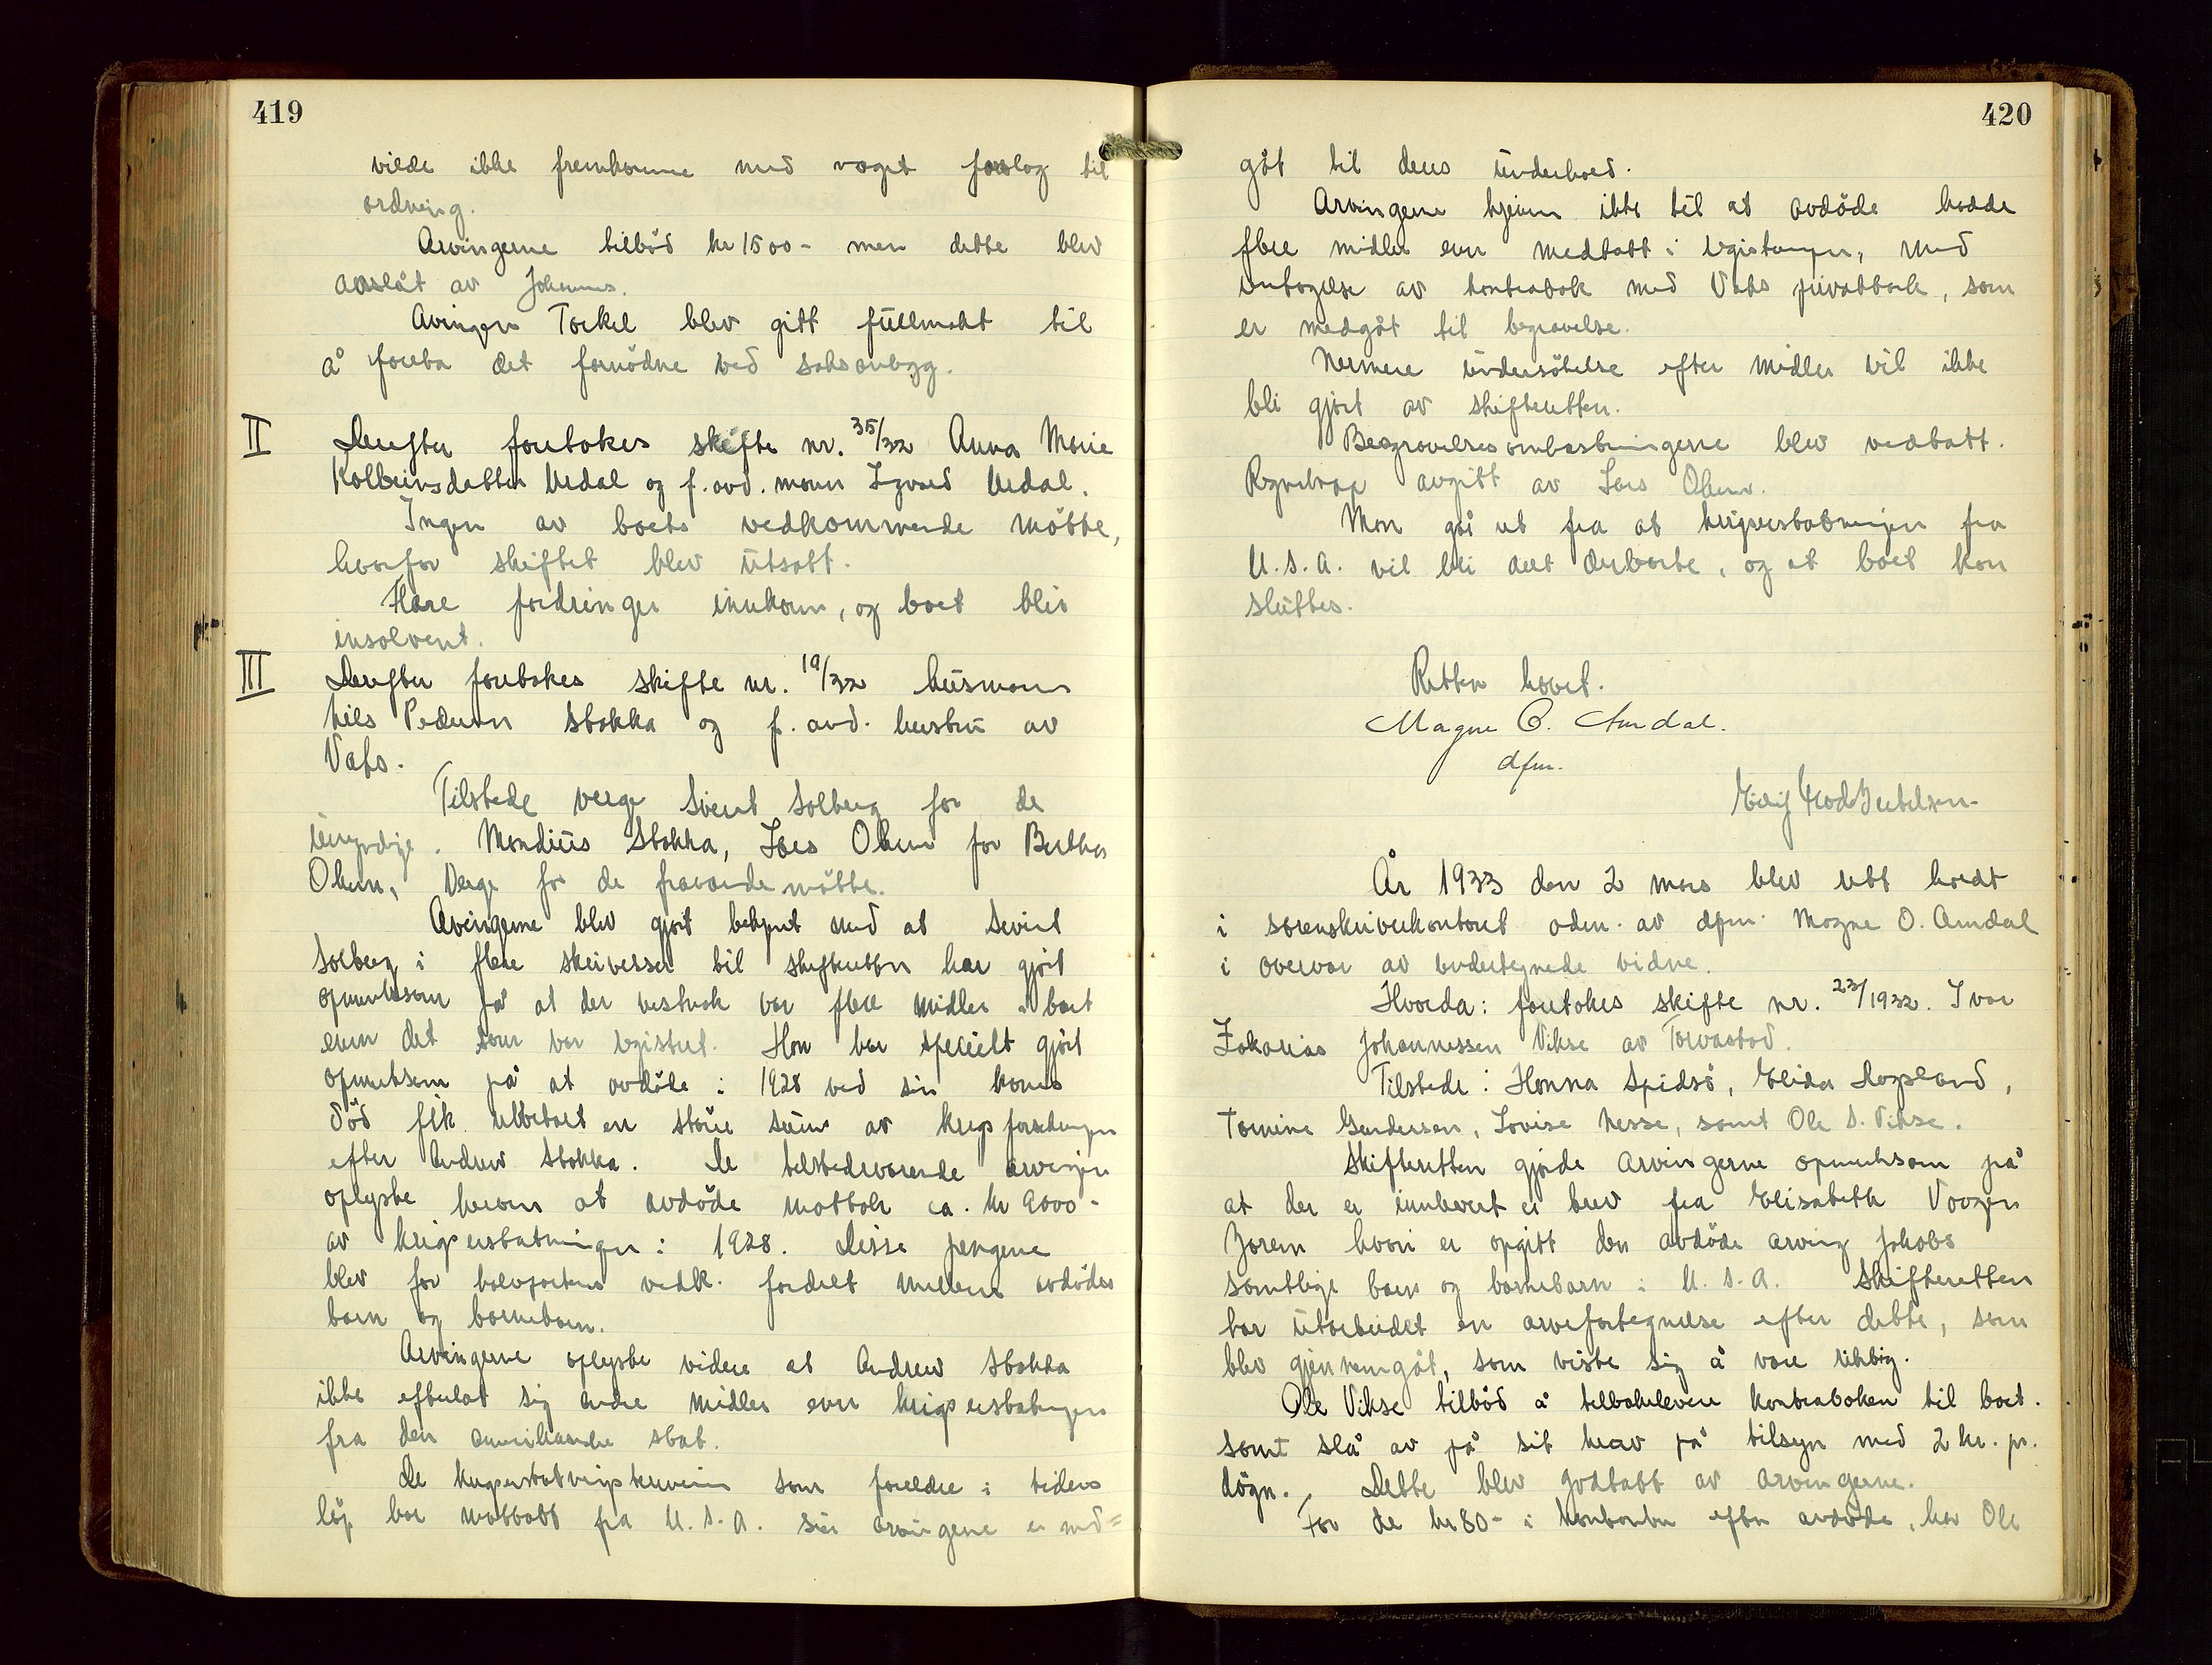 419
vilde ikke fremkomme med noget forslag til
ordning.
Arvingerne tilbød kr 1500- men dette blev
avslåt av Johannes.
Avingen Torkel blev gitt fullmakt til
å foreta det fornødne ved saksanlegg.
II Derefter foretokes skifte nr. 35/32 Anna Marie
Kolbeinsdatter Uedal og f. avd. mann Uedal.
Ingen av boets vedkommende møtte,
hvorfor skiftet blev utsatt.
Flere fordringer innkom, og boet blir
insolvent.
III Derefter foretokes skifte nr. 19/32 husmann
Nils Pedersen Stakka og f. avd. hustru av
Vats.
Tilstede verge Sivert Solberg for de
umyndige. Mondius Stakka, Lars Olsen for Bertha
Olsen, Verge for de fraværende møtte.
Avingerne blev gjort bekjent med at Sivert
Solberg i flere skrivelser til skifteretten har gjort
opmerksom på at der visstnok var flere midler i boet
enn det som var registrert. Han har specielt gjort
opmerksom på at avdøde i 1928 ved sin kones
död fik utbetalt en större sum av krigs
efter Andrew Stakka. De tilstedeværende arvinger
oplyste herom at avdøde mottok ca. kr 9000-
av krigserstatningen i 1928. Disse pengene
blev for halvpartens vedk. fordelt mellem avdødes
barn og barnebarn.
Arvingerne oplyste videre at Andrew Stakka
ikke efterlot sig andre midler enn krigserstatningen
fra den amerikanske stat.
De som foreldre i tidens
löp har mottatt fra U.S.A. sier arvingene er med=
420
gåt til deres underhold.
Arvingerne kjenner ikke til at avdøde hadde
flere midler enn medtatt i registeringen, med
untagelse av kontrabok med Vats privatbank, som
er medgåt til begravelse.
Nermere undersökelse efter midler vil ikke
bli gjort av skifteretten.
Begravelsesomkostningerne blev vedtatt.
Regnskap avgitt av Lars Olsen.
Man gå ut fra at krigserstatningen fra
U.S.A. vil bli delt derborte, og at boet kan
sluttes.
Retten hævet.
Magne O. Amdal.
dfm.
År 1933 den 2 mars blev rett holdt
i sorenskriverkontoret adm. av dfm. Magne O. Amdal
i overvær av undertegnede vidne.
Hvorda: foretokes skifte nr. 23/1932. Ivar
Zakarias Johannessen Vikse av Torvastad.
Tilstede: Hanna Spidsö, Elida Rogsland,
Tomine Gundersen, Lovise Nesse, samt Ole S. Vikse.
Skifteretten gjorde arvingerne opmerksom på
at der er innlevert et brev fra Elisabeth Vaagen
Zorem hvori er opgitt den avdöde arving Jakobs
samtlige barn og barnebarn i U.S.A. Skifteretten
har utarbeidet en arvefortegnelse efter dette, som
blev gjennemgåt, som viste sig å være riktig.
Ole Vikse tilbød å tilbakelevere kontraboken til boet.
samt slå av på sit krav på tilsyn med 2 kr. pr.
dögn. Dette blev godtatt av arvingerne.
For de kr 80- i kontanter efter avdöde, har Ole